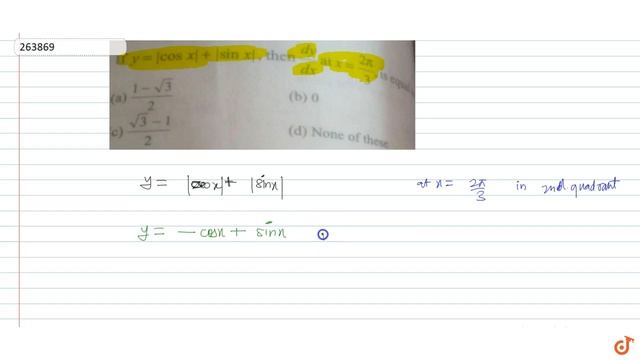 263869
If y = |cos x| + |sin x|, then dy/dx at x = 2π/3 is equal
(a) (1 − √3)/2 (b) 0
(c) (√3 − 1)/2 (d) None of these
y = |cos x| + |sin x| at x = 2π/3 in 2nd quadrant
y = − cos x + sin x